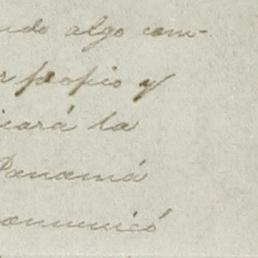 ndo algo com-
r propio y
icará la
Panamá
comunicó